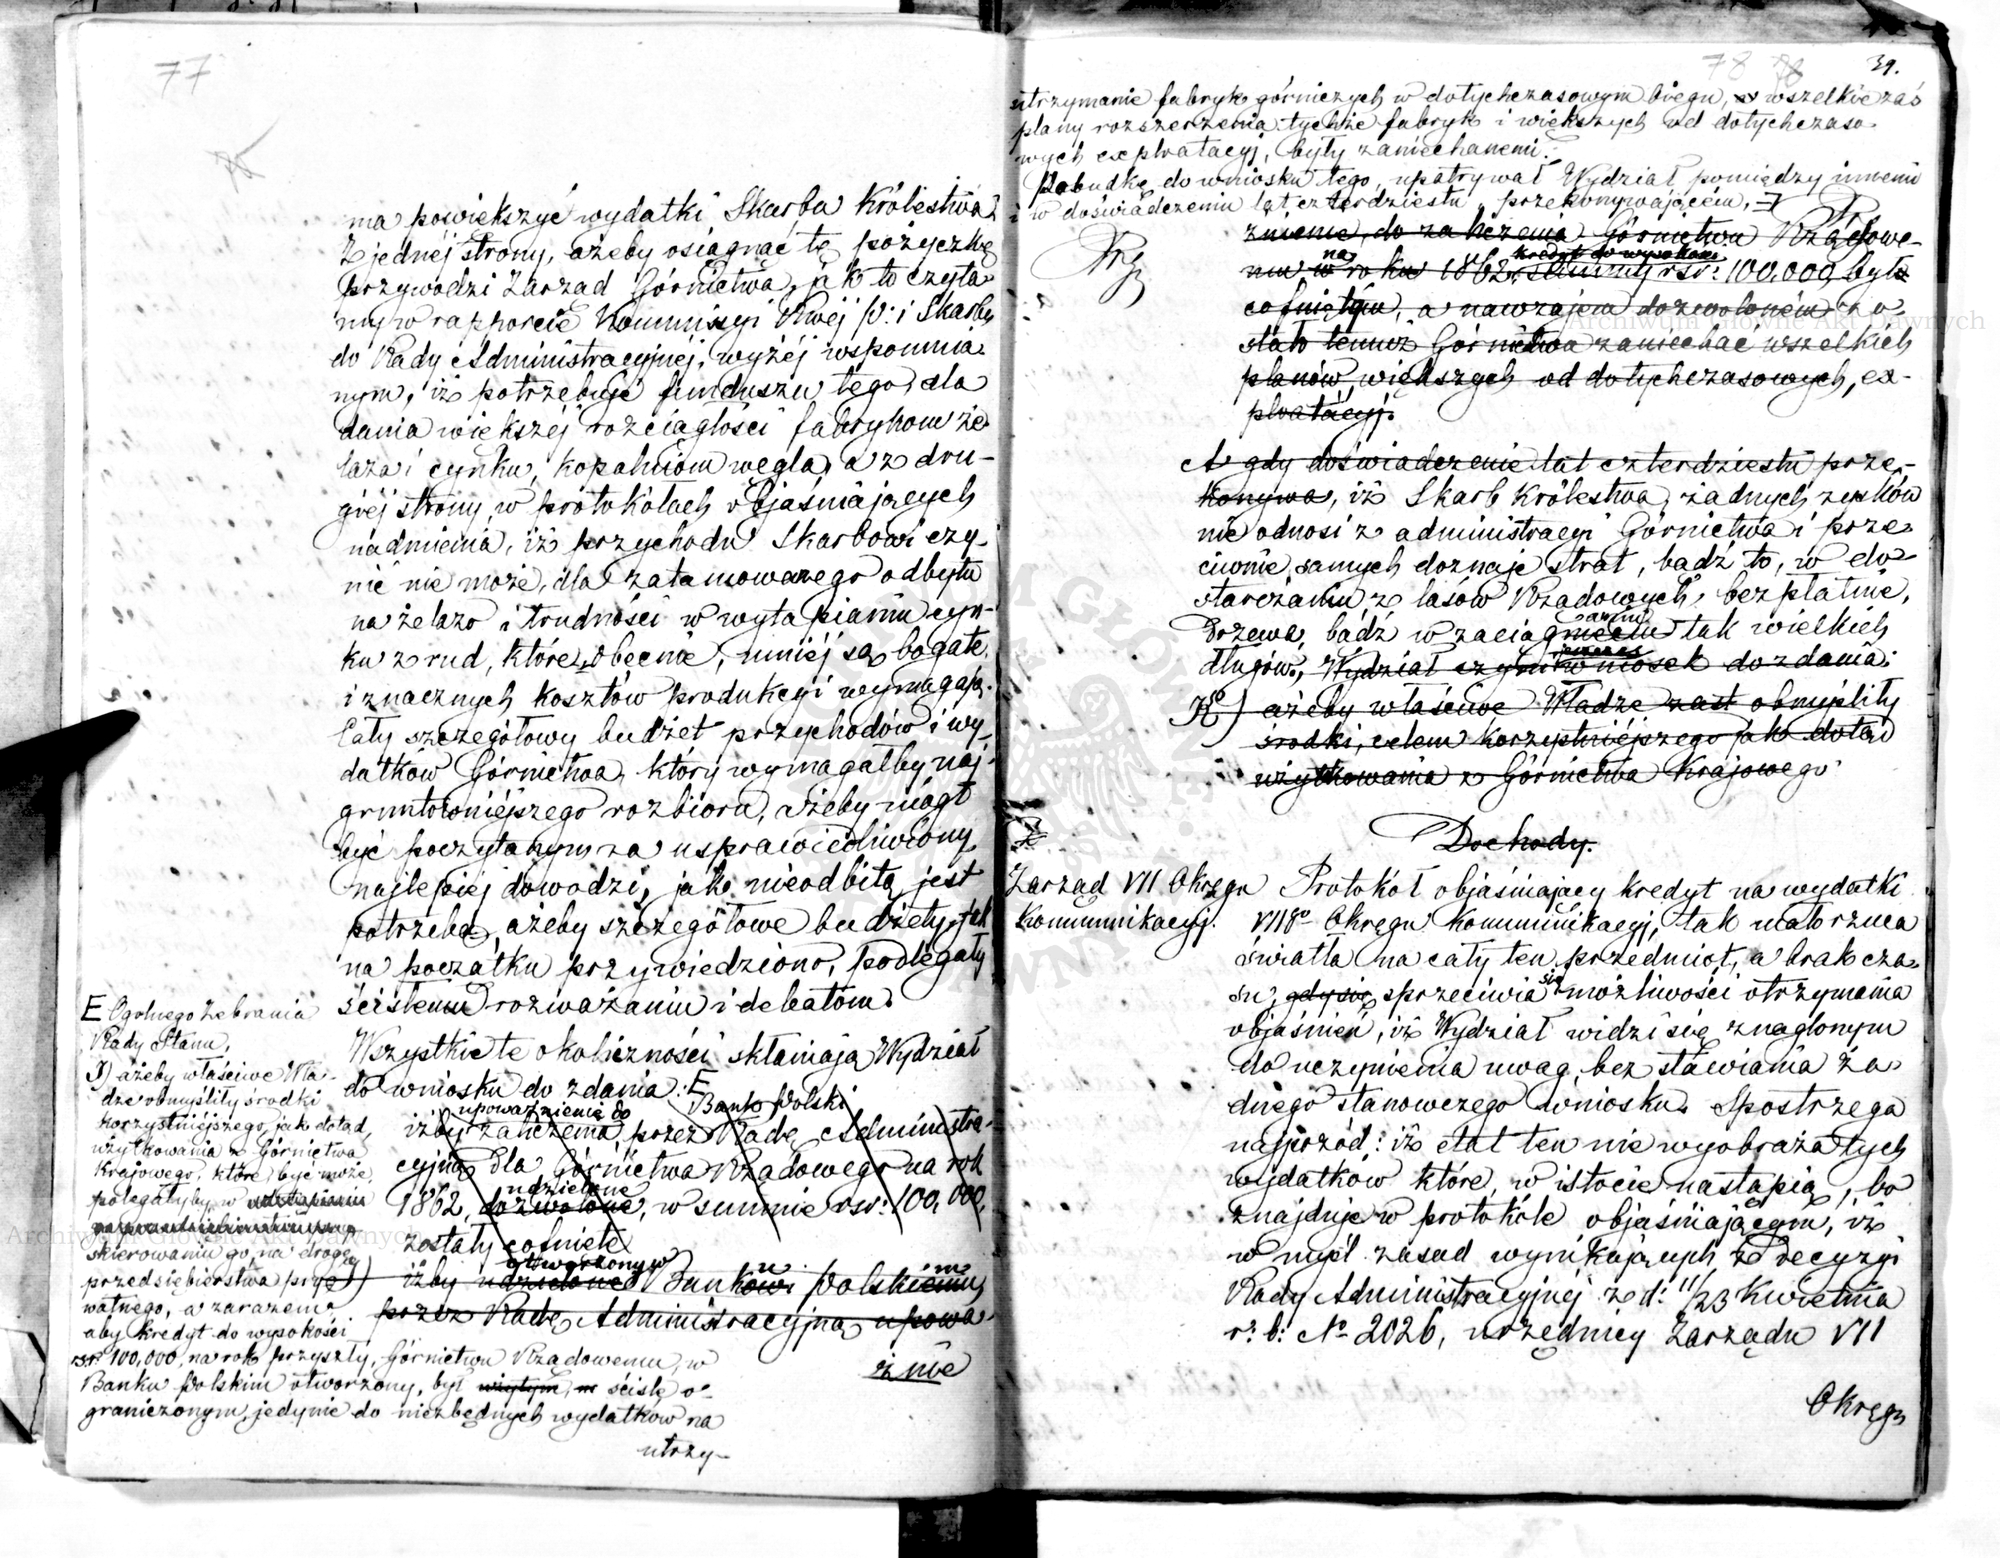 77
ma powiększyć wydatki Skarbu Królestwa.
Z jednéj strony, ażeby osiągnąć tę pożyczkę
przywodzi Zarząd Górnictwa, jak to czyta-
my w rapporcie Kommissyi Rwéj P: i Skarbu
do Rady Administracyjnéj, wyżéj wspomnia-
nym, iż potrzebuje funduszu tego, dla
dania większéj rozciągłości fabrykom że-
laza i cynku, kopalniom węgla, a z dru-
giéj strony, w protokółach objaśniających
nadmienia, iż przychodu Skarbowi czy-
nić nie może, dla zatamowanego odbytu
na żelazo i trudności w wytapianiu cyn-
ku z rud, które obecnie, mniéj są bogate
i znacznych kosztów produkcyi wymagają.
Cały szczegółowy budżet przychodów i wy-
datków Górnictwa, który wymagałby naj-
gruntowniejszego rozbioru, ażeby mógł
być poczytanym za usprawiedliwiony
najlepiéj dowodzi, jak nieodbitą jest
potrzeba, ażeby szczegółowe budżety, jak
na początku przywiedziono, podlegały
ścisłemu rozważaniu i debatom.
Wszystkie te okoliczności skłaniają Wydział
do wniosku do zdania: E
upoważnienie do Bank Polski
iżby zaliczenia, przez Radę Administra-
cyjną dla Górnictwa Rządowego na rok
udzielone
1862, dozwolone, w summie rsr: 100,000,
zostały cofnięte
otworzonym
iżby udzielone Bankowi Polskiemu
przez Radę Administracyjną upowa-
żnie
E Ogólnego Zebrania
Rady Stanu,
J) ażeby właściwe Wła-
dze obmyśliły środki
korzystniéjszego, jak dotąd,
użytkowania z Górnictwa
Krajowego, które, być może,
polegałyby w
skierowaniu go, na drogę
przedsiębierstwa pry-
watnego, a zarazem,
aby kredyt do wysokości
rsr: 100,000, na rok przyszły, Górnictwu Rządowemu, w
Banku Polskim otworzony, był użytym, w ściśle o-
graniczonym, jedynie do niezbędnych wydatków na
utrzy-
78
39.
utrzymanie fabryk górniczych w dotychczasowym biegu, a wszelkie zaś
plany rozszerzenia tychże fabryk i większych od dotychczaso-
wych exploatacyj, były zaniechanemi.
Pobudkę do wniosku tego, upatrywał Wydział pomiędzy innemi
i w doświadczeniu lat czterdziestu, przekonywającém,
żnienie, do zaliczenia Górnictwu Rządowe-
na kredyt do wysokości
mu w roku 1862, summy rsr: 100,000, było
cofniętém, a nawzajem dozwoloném zo-
stało temuż Górnictwu zaniechać wszelkich
planów większych od dotychczasowych, ex-
ploatacyj.
A gdy doświadczenie lat czterdziestu prze-
konywa, iż Skarb Królestwa, żadnych zysków
nie odnosi z administracyi Górnictwa i prze-
ciwnie, samych doznaje strat, bądź to, w do-
starczaniu z lasów Rządowych, bezpłatnie,
drzewa, bądź w zaciągnieniu tak wielkich
długów, Wydział czyni wniosek do zdania:
K) ażeby właściwe Władze zaś obmyśliły
środki, celem korzystniéjszego jak dotąd
użytkowania z Górnictwa Krajowego
Dochody.
Zarząd VII Okręgu
Kommunikacyj.
Protokół objaśniający kredyt na wydatki
VIIgo Okręgu Kommunikacyj, tak mało rzuca
światła na cały ten przedmiot, a brak cza-
su, gdy się sprzeciwia się możliwości otrzymania
objaśnień, iż Wydział widzi się znaglonym
do uczynienia uwag, bez stawiania ża-
dnego stanowczego wniosku. Spostrzega
najprzód: iż etat ten nie wyobraża tych
wydatków które, w istocie nastąpią, bo
znajduje w protokóle objaśniającym, iż
w myśl zasad wynikających z Decyzyi
Rady Administracyjnéj z d: 11/23 Kwietnia
r: b: No 2026, urzędnicy Zarządu VII
Okręgu